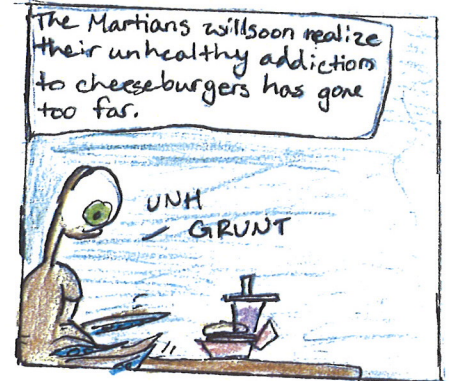 The Martians will soon realize
their unhealthy addiction
to cheeseburgers has gone
too far.
UNH
GRUNT